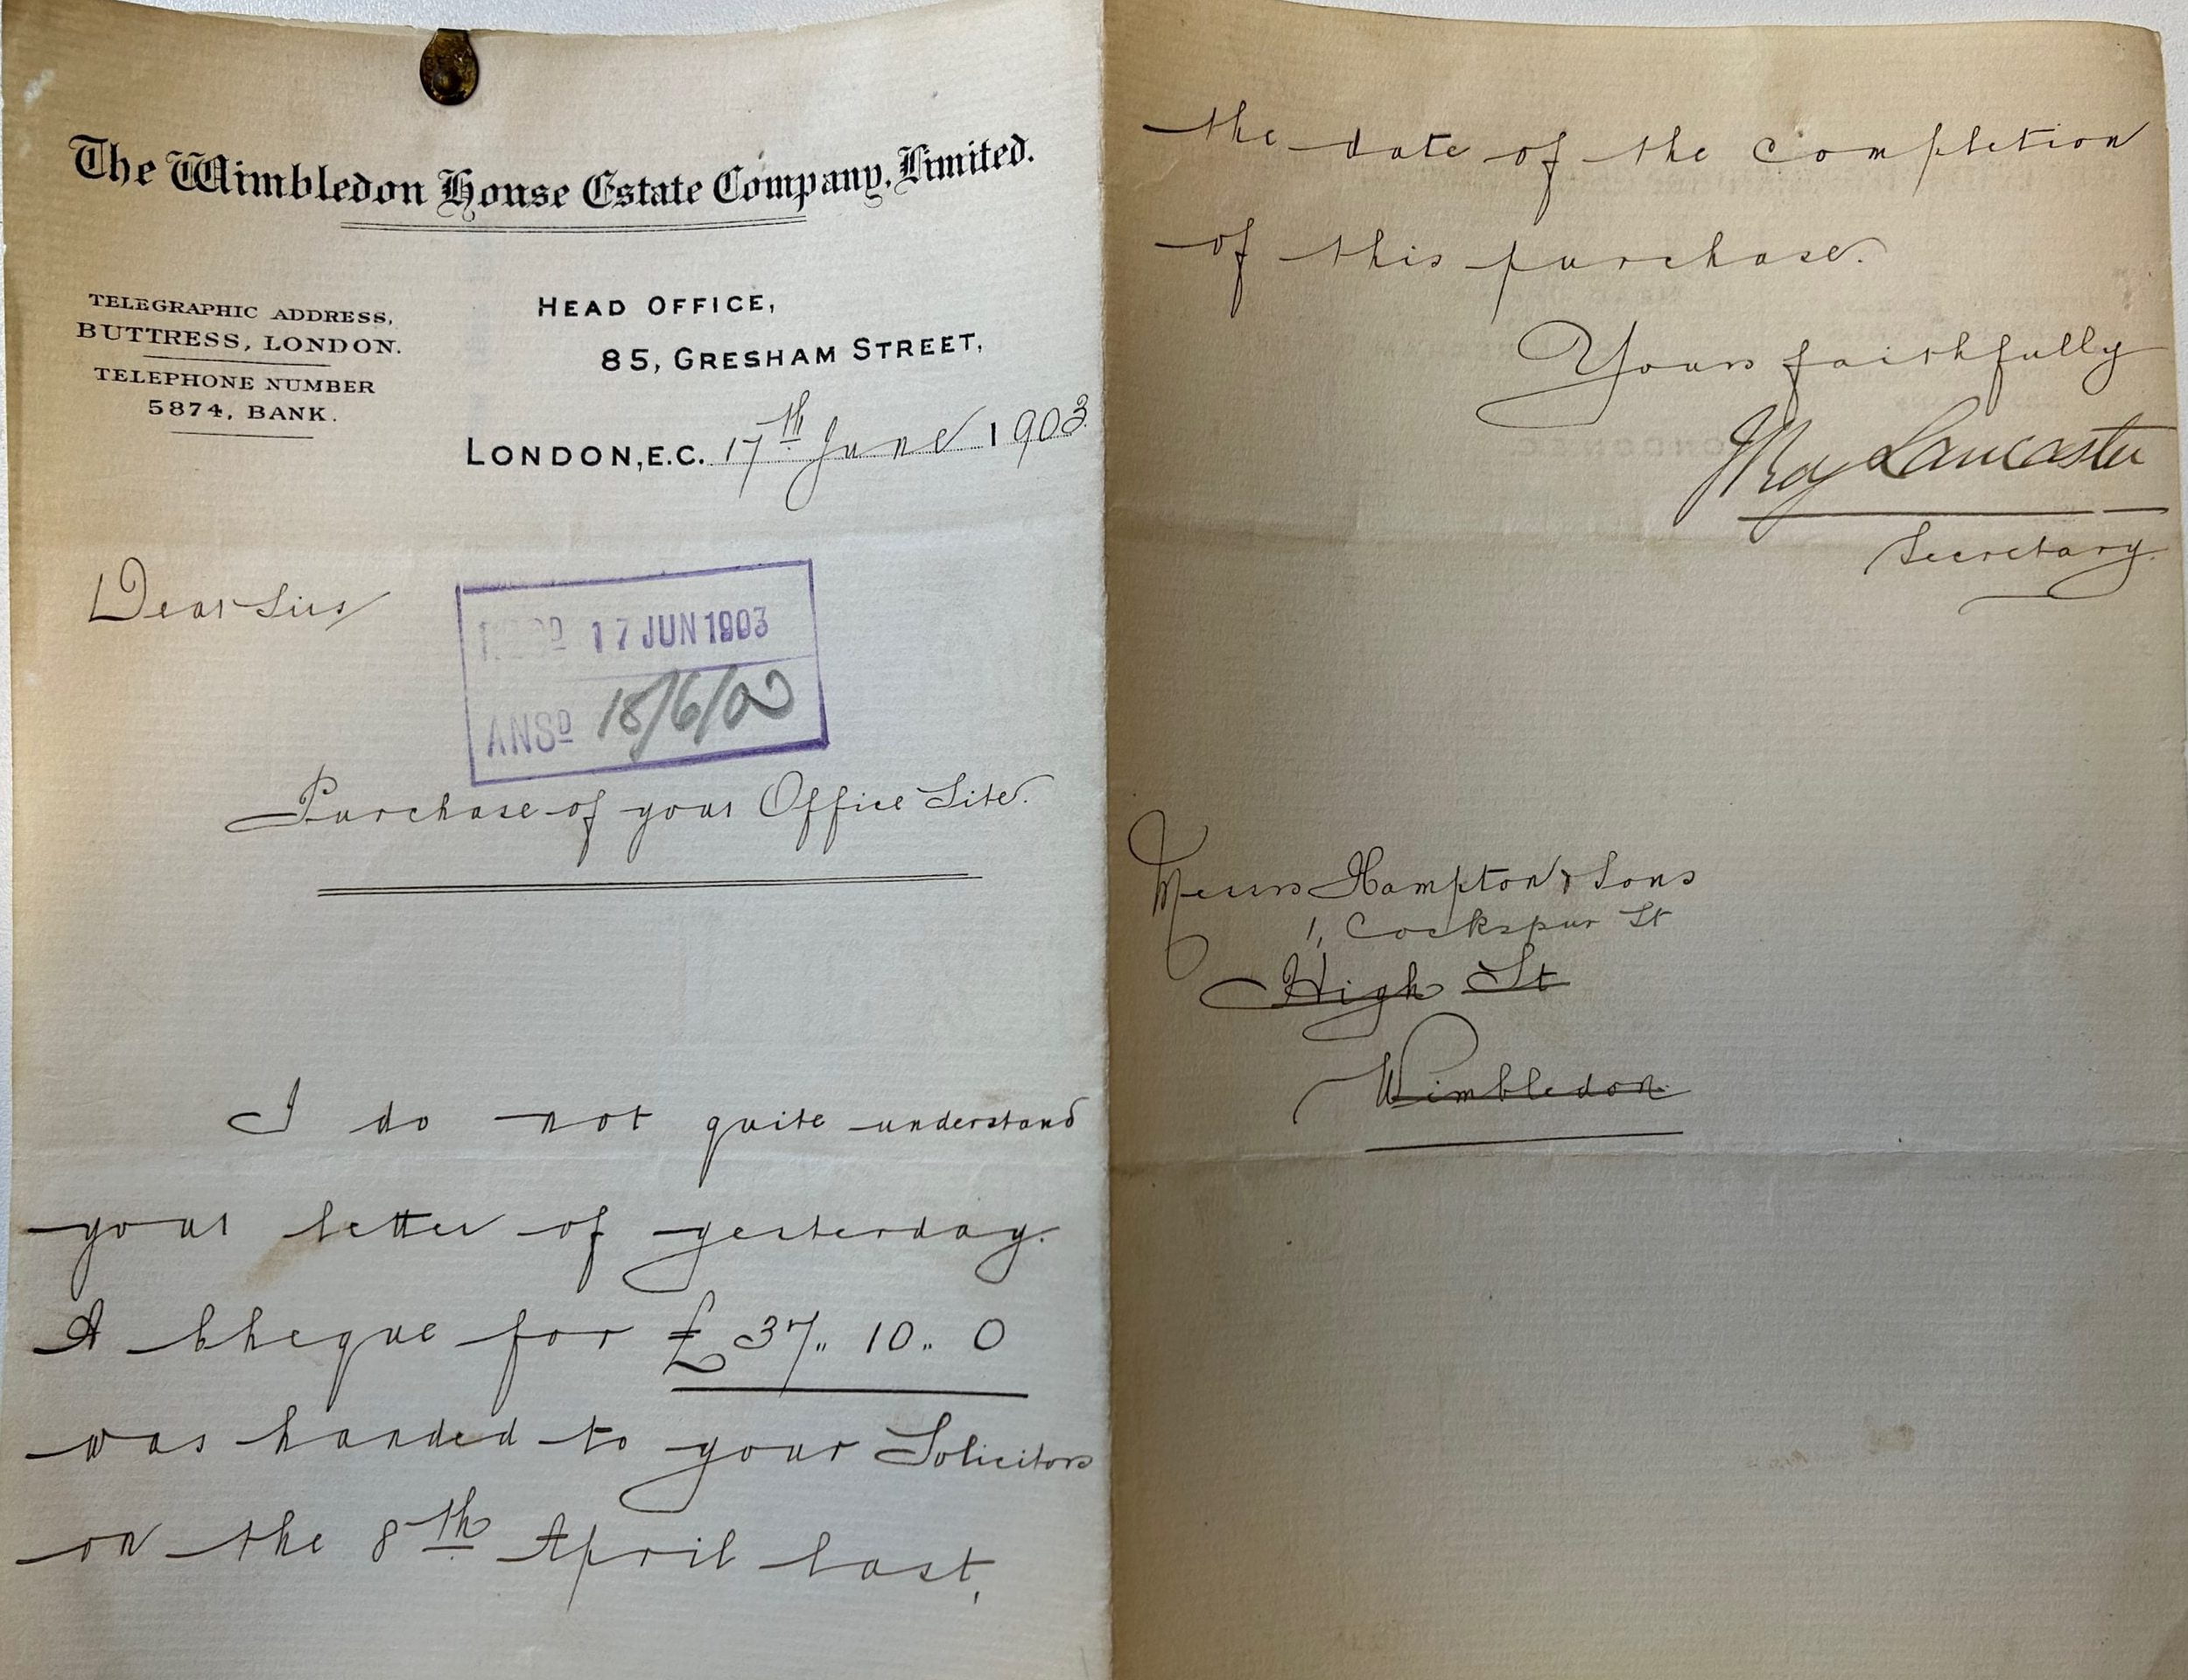 The Wimbledon House Estate Company, Limited.
TELEGRAPHIC ADDRESS,
BUTTRESS, LONDON.
TELEPHONE NUMBER
5874, BANK.
HEAD OFFICE,
85, GRESHAM STREET,
LONDON, E.C. 17th June 1903
Dear Sirs
17 JUN 1903
ANSD 18/6/03
Purchase of your Office Site.
I do not quite understand
your letter of yesterday.
A Cheque for £37,, 10,, 0
was handed to your Solicitors
on the 8th April last,
the date of the completion
of this purchase.
Yours faithfully
Lancaster
Secretary.
Messrs Hampton & Sons
1, Cockspur St
High St
Wimbledon